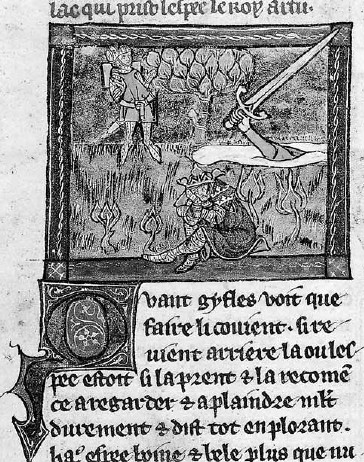 lac qui prist lespee le roy artu.
Quant gyfles voit que
faire li couient. si re
uient arriere la ou les
pee estoit si la prent & la recomē
ce a regarder & a plaindre mlt
durement & dist tot en plorant.
ha. espee bone & bele plus que nu